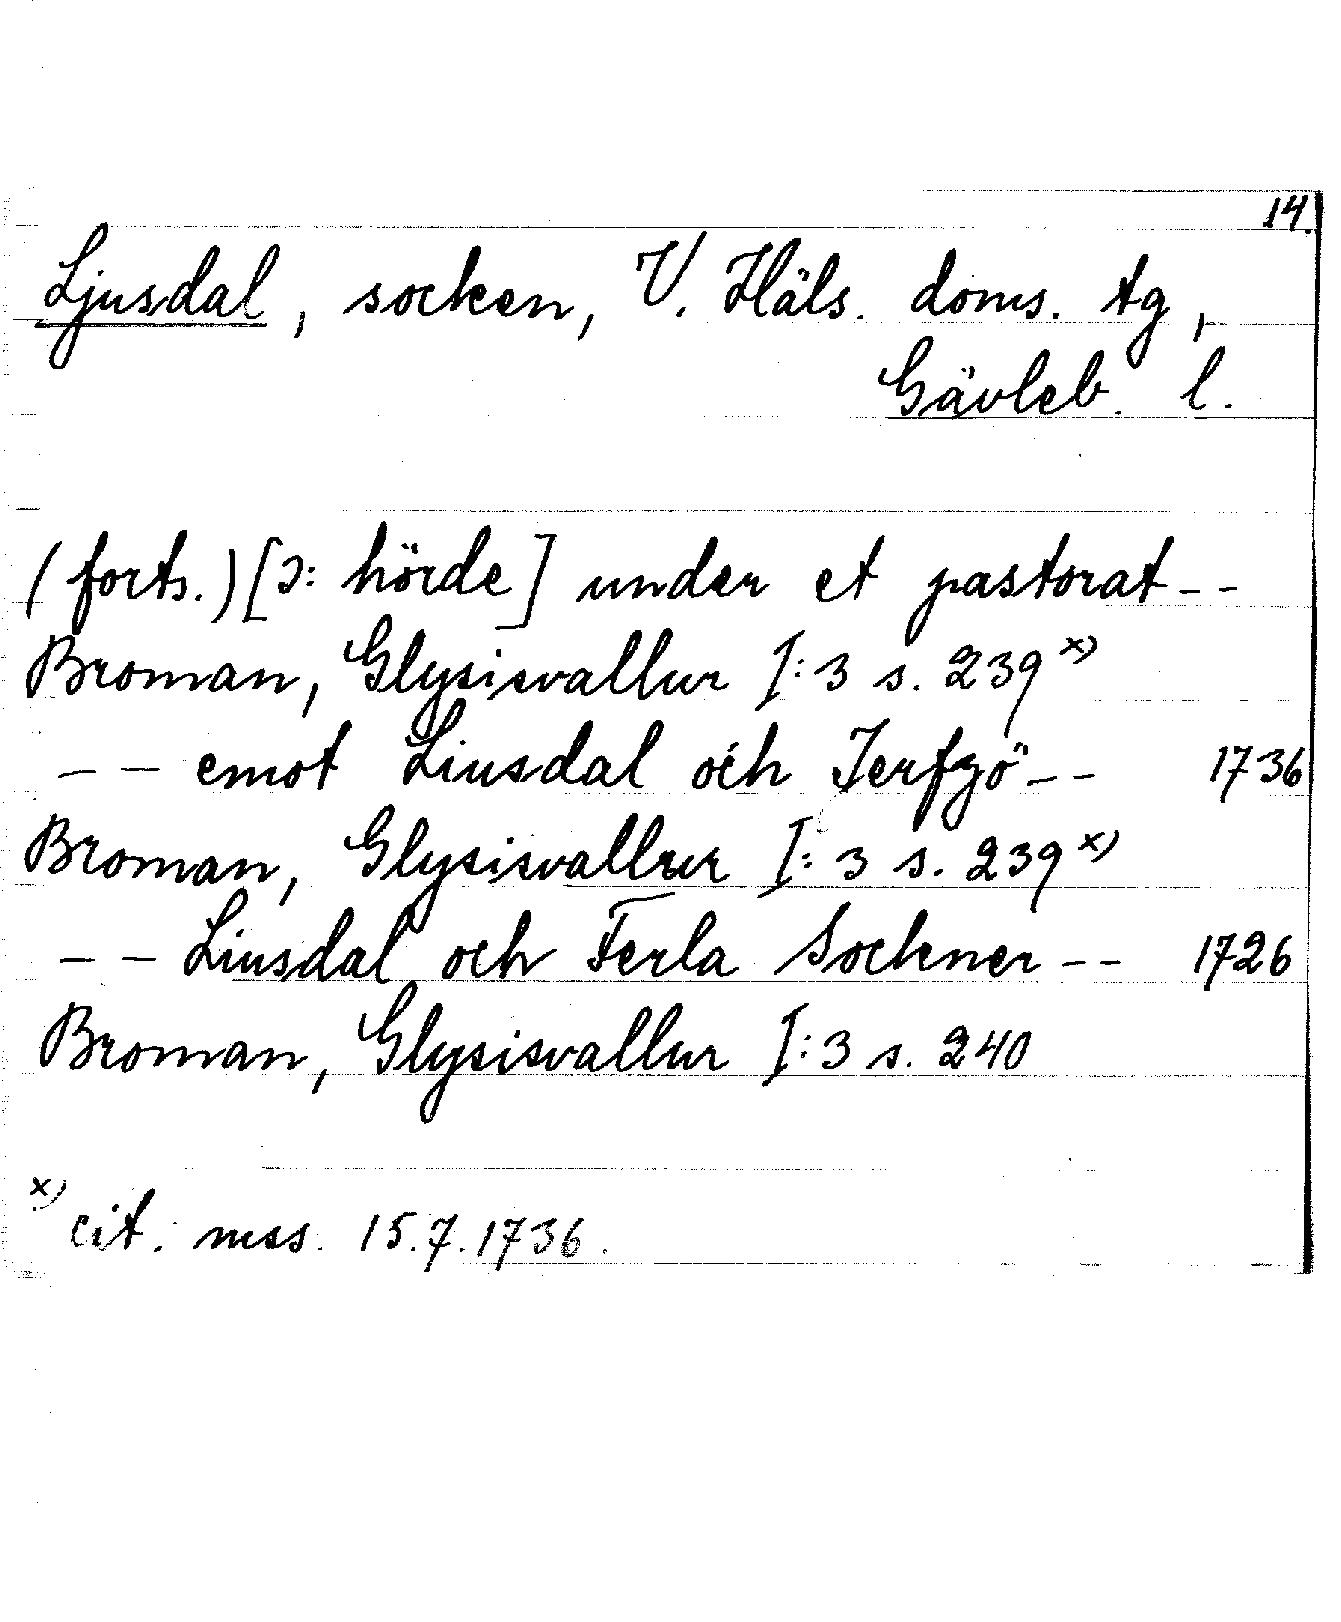 14.
Ljusdal, socken, V. Häls. doms. tg,
Gävleb. l.
(forts.) [ɔ: hörde] under et pastorat--
Broman, Glysisvallur I:3 s. 239 x)
-- emot Liusdal och Jerfzö-- 1736
Broman, Glysisvallur I:3 s. 239 x)
-- Liusdal och Ferla Sockner-- 1726
Broman, Glysisvallur I:3 s. 240
x) cit. mss. 15.7.1736.